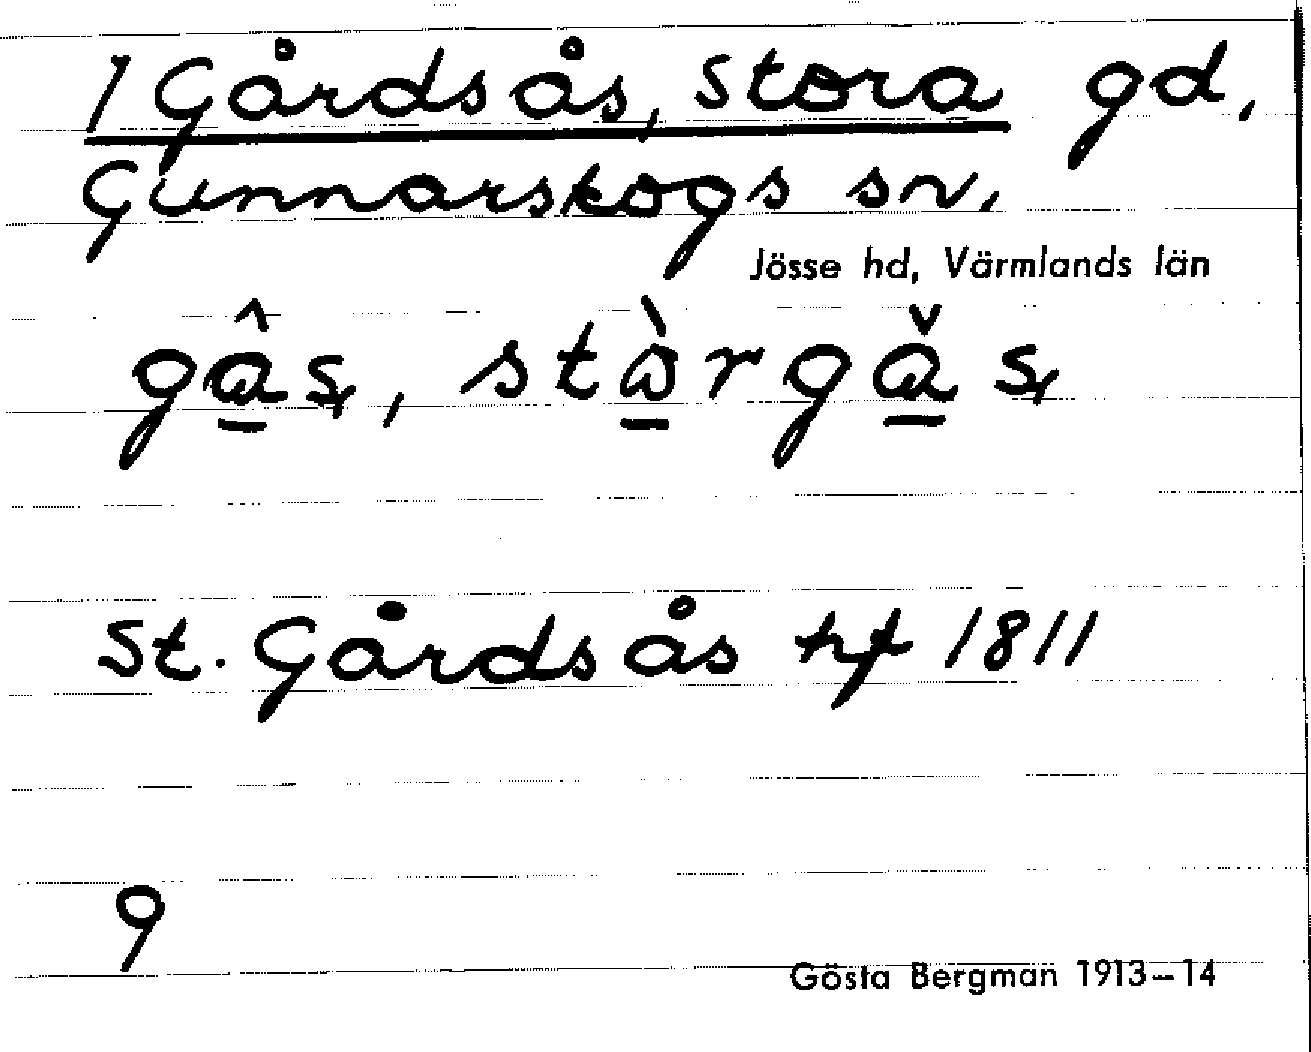 1 Gårdsås, Stora gd,
Gunnarskogs sn,
Jösse hd, Värmlands län
St. Gårdsås hf 1811
9
Gösta Bergman 1913–14